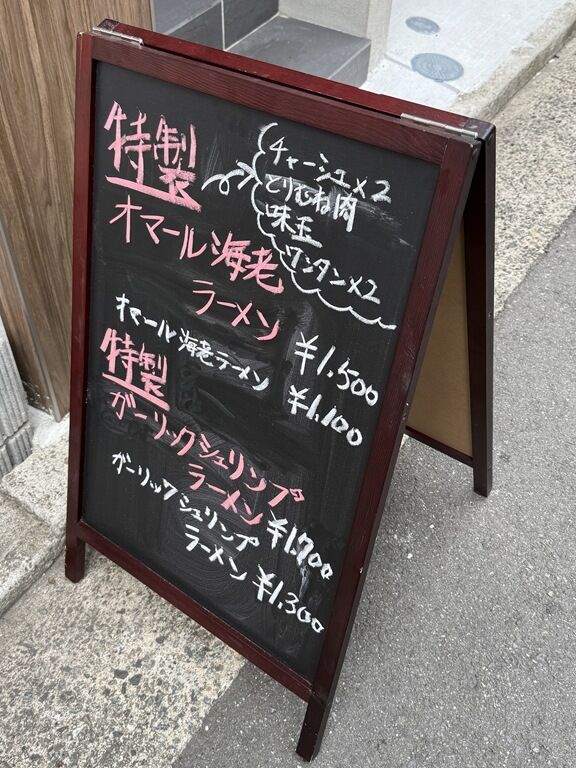 特製
チャーシュ×2
とりむね肉
味玉
ワンタン×2
オマール海老
ラーメン
¥1,500
オマール海老ラーメン
¥1,100
特製
ガーリックシュリンプ
ラーメン
¥1,700
ガーリックシュリンプ
ラーメン
¥1,300